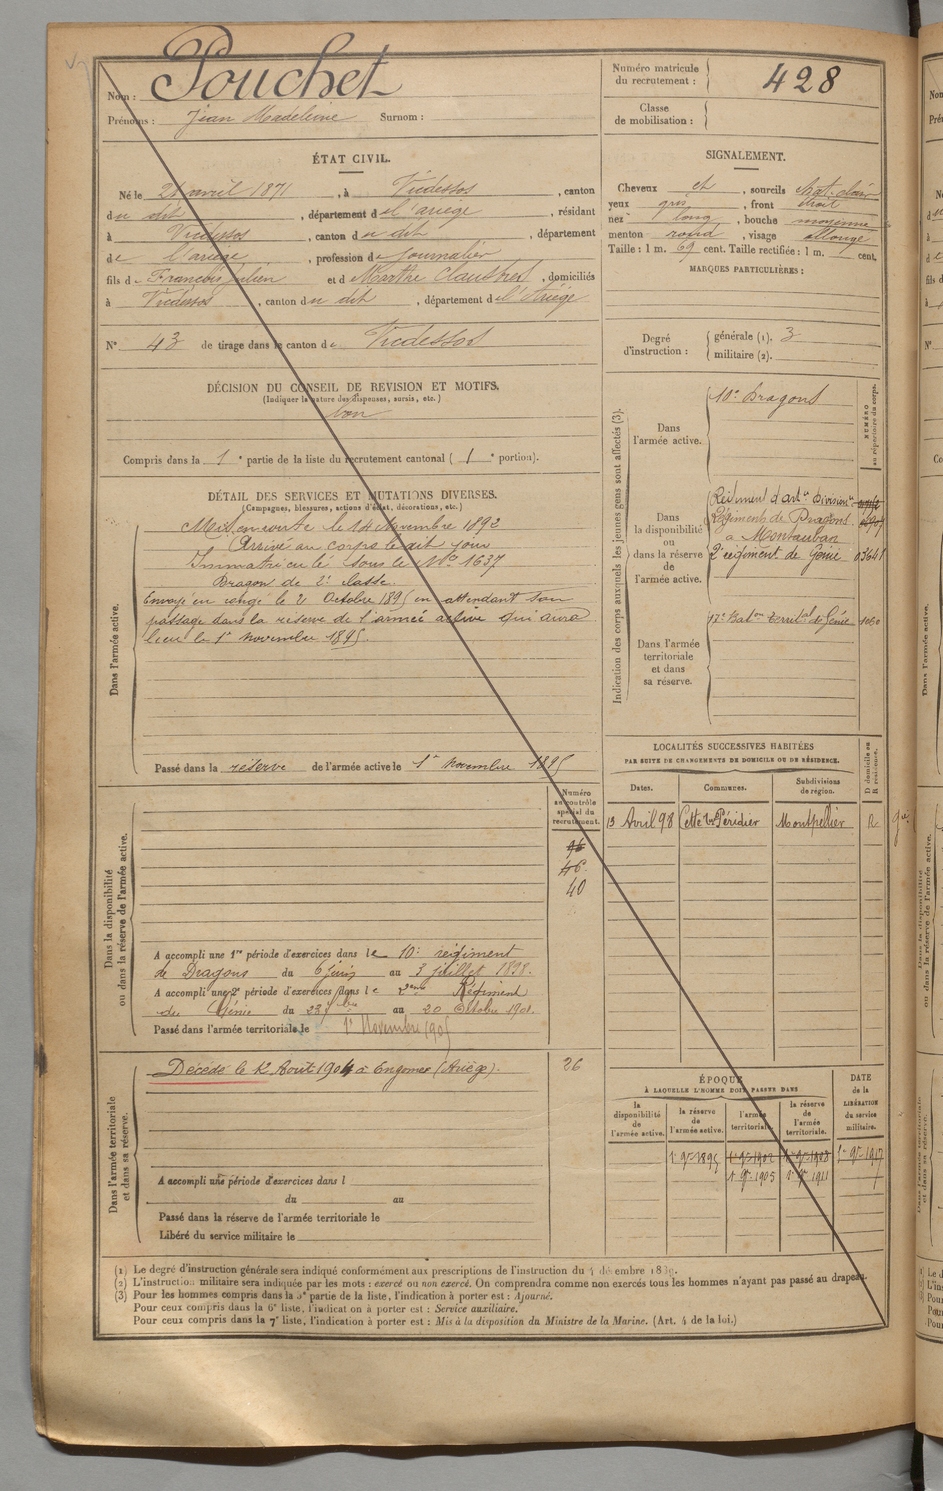 Nom : Pouchet
Prénoms : Jean Madeleine Surnom :
Numéro matricule du recrutement : 428
Classe de mobilisation :
ÉTAT CIVIL.
Né le 21 avril 1871, à Vicdessos, canton
du dit, département de l'ariège, résidant
à Vicdessos, canton du dit, département
de l'ariège, profession de Journalier
fils de François Julien et de Marthe Claustres, domiciliés
à Vicdessos, canton du dit, département de l'Ariège
N° 43 de tirage dans le canton de Vicdessos
DÉCISION DU CONSEIL DE REVISION ET MOTIFS.
(Indiquer la nature des dispenses, sursis, etc.)
bon
Compris dans la 1e partie de la liste du recrutement cantonal (1e portion).
SIGNALEMENT.
Cheveux et, sourcils chat. clair
yeux gris, front droit
nez long, bouche moyenne
menton rond, visage allongé
Taille : 1 m. 69 cent. Taille rectifiée : 1 m. cent.
MARQUES PARTICULIÈRES :
Degré d'instruction :
générale (1). 3
militaire (2).
DÉTAIL DES SERVICES ET MUTATIONS DIVERSES.
(Campagnes, blessures, actions d'éclat, décorations, etc.)
Dans l'armée active.
Mis en route le 14 Novembre 1892
Arrivé au corps le dit jour
Immatriculé sous le No 1637
Dragon de 2e classe.
Envoyé en congé le 21 Octobre 1895 en attendant son
passage dans la réserve de l'armée active qui aura
lieu le 1er novembre 1895.
Passé dans la réserve de l'armée active le 1er Novembre 1895
Indication des corps auxquels les jeunes gens sont affectés (3).
NUMÉRO au répertoire du corps.
Dans l'armée active.
10e Dragons
Dans la disponibilité ou dans la réserve de l'armée active.
Régiment d'artie division.
Régiments de Dragons
à Montauban
2e régiment de Génie 03641
Dans l'armée territoriale et dans sa réserve.
17e Baton territal de Génie 1060
LOCALITÉS SUCCESSIVES HABITÉES
PAR SUITE DE CHANGEMENTS DE DOMICILE OU DE RÉSIDENCE.
Dates. Communes. Subdivisions de région. D domicile ou R résidence.
13 Avril 98 Cette Péridier Montpellier R
Dans la disponibilité ou dans la réserve de l'armée active.
Numéro au contrôle spécial du recrutement.
46
40
A accompli une 1re période d'exercices dans le 10e régiment
de Dragons du 6 juin au 3 juillet 1898.
A accompli une 2e période d'exercices dans le 2ème Régiment
du Génie du 23 7bre au 20 Octobre 1901.
Passé dans l'armée territoriale le 1er Novembre 1905
Dans l'armée territoriale et dans sa réserve.
Décédé le 12 Août 1904 à Engomer (Ariège). 26
A accompli une période d'exercices dans l
du au
Passé dans la réserve de l'armée territoriale le
Libéré du service militaire le
ÉPOQUE
À LAQUELLE L'HOMME DOIT PASSER DANS
la disponibilité de l'armée active. la réserve de l'armée active. l'armée territoriale. la réserve de l'armée territoriale.
DATE de la LIBÉRATION du service militaire.
1er 9bre 1895 1er 9bre 1902 1er 9bre 1908 1er 9bre 1917
1er 9bre 1905 1er 9bre 1911
(1) Le degré d'instruction générale sera indiqué conformément aux prescriptions de l'instruction du 4 décembre 1889.
(2) L'instruction militaire sera indiquée par les mots : exercé ou non exercé. On comprendra comme non exercés tous les hommes n'ayant pas passé au drapeau.
(3) Pour les hommes compris dans la 5e partie de la liste, l'indication à porter est : Ajourné.
Pour ceux compris dans la 6e liste, l'indication à porter est : Service auxiliaire.
Pour ceux compris dans la 7e liste, l'indication à porter est : Mis à la disposition du Ministre de la Marine. (Art. 4 de la loi.)